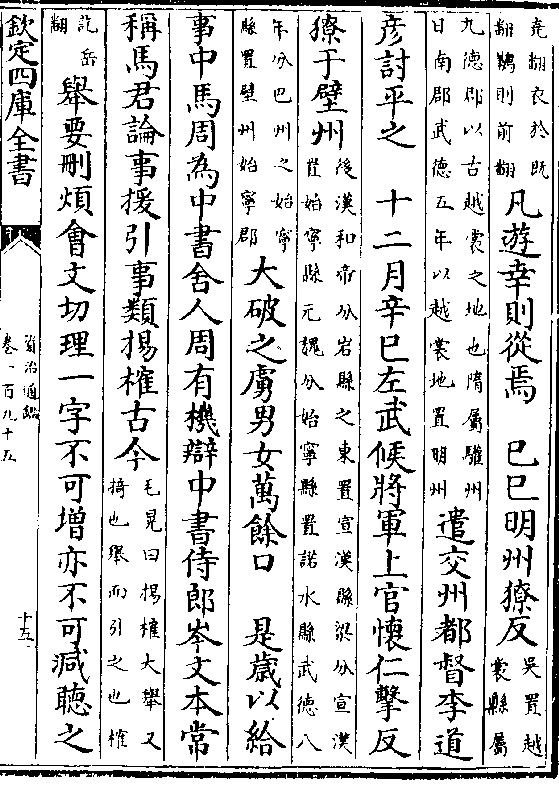 堯翻衣於既
翻韉則前翻
凡遊幸則從焉　己巳明州獠反
吳置越
裳縣屬
九德郡以古越裳之地也隋屬驩州
日南郡武德五年以越裳地置明州
遣交州都督李道
彥討平之　十二月辛巳左武候將軍上官懷仁擊反
獠于壁州
後漢和帝分宕縣之東置宣漢縣梁分宣漢
置始寧縣元魏分始寧縣置諾水縣武德八
年分巴州之始寧
縣置壁州始寧郡
大破之虜男女萬餘口　是歲以給
事中馬周為中書舍人周有機辯中書侍郎岑文本常
稱馬君論事援引事類揚榷古今
毛晃曰揚榷大舉又
掎也舉而引之也榷
訖岳
翻
舉要刪煩會文切理一字不可增亦不可減聽之
欽定四庫全書
資治通鑑
卷一百九十五
十五